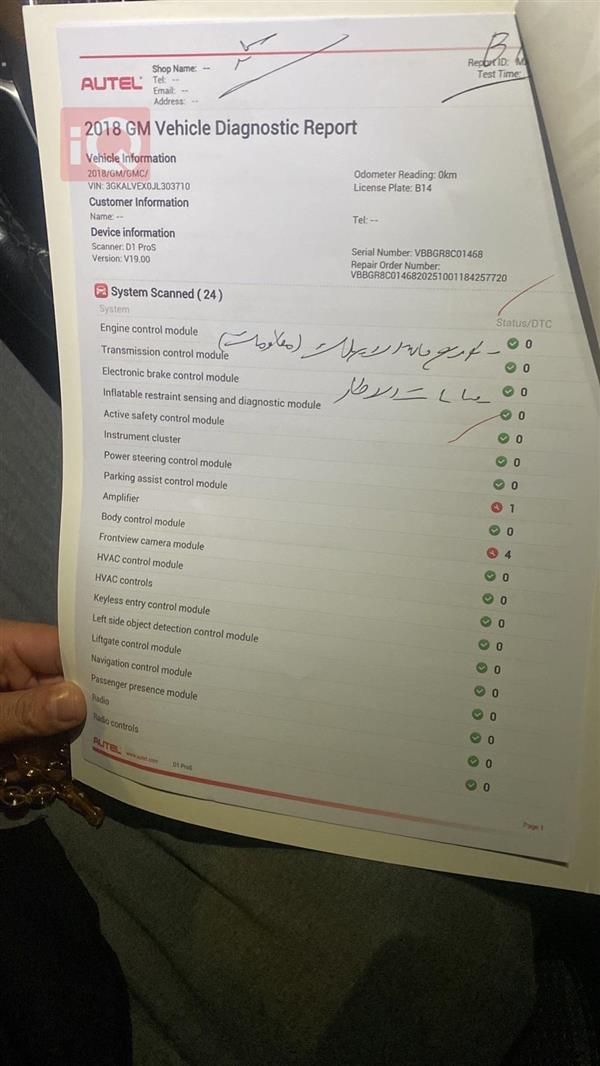 AUTEL
Shop Name: --
Tel: --
Email: --
Address: --
Report ID:
Test Time:
iQ
2018 GM Vehicle Diagnostic Report
Vehicle Information
2018/GM/GMC/
VIN: 3GKALVEX0JL303710
Odometer Reading: 0km
License Plate: B14
Customer Information
Name: --
Tel: --
Device information
Scanner: D1 ProS
Version: V19.00
Serial Number: VBBGR8C01468
Repair Order Number:
VBBGR8C0146820251001184257720
System Scanned ( 24 )
System Status/DTC
Engine control module 0
Transmission control module 0
(معلومات)
Electronic brake control module 0
Inflatable restraint sensing and diagnostic module 0
Active safety control module 0
Instrument cluster 0
Power steering control module 0
Parking assist control module 1
Amplifier 0
Body control module 4
Frontview camera module 0
HVAC control module 0
HVAC controls 0
Keyless entry control module 0
Left side object detection control module 0
Liftgate control module 0
Navigation control module 0
Passenger presence module 0
Radio 0
Radio controls 0
AUTEL www.autel.com D1 ProS
Page 1